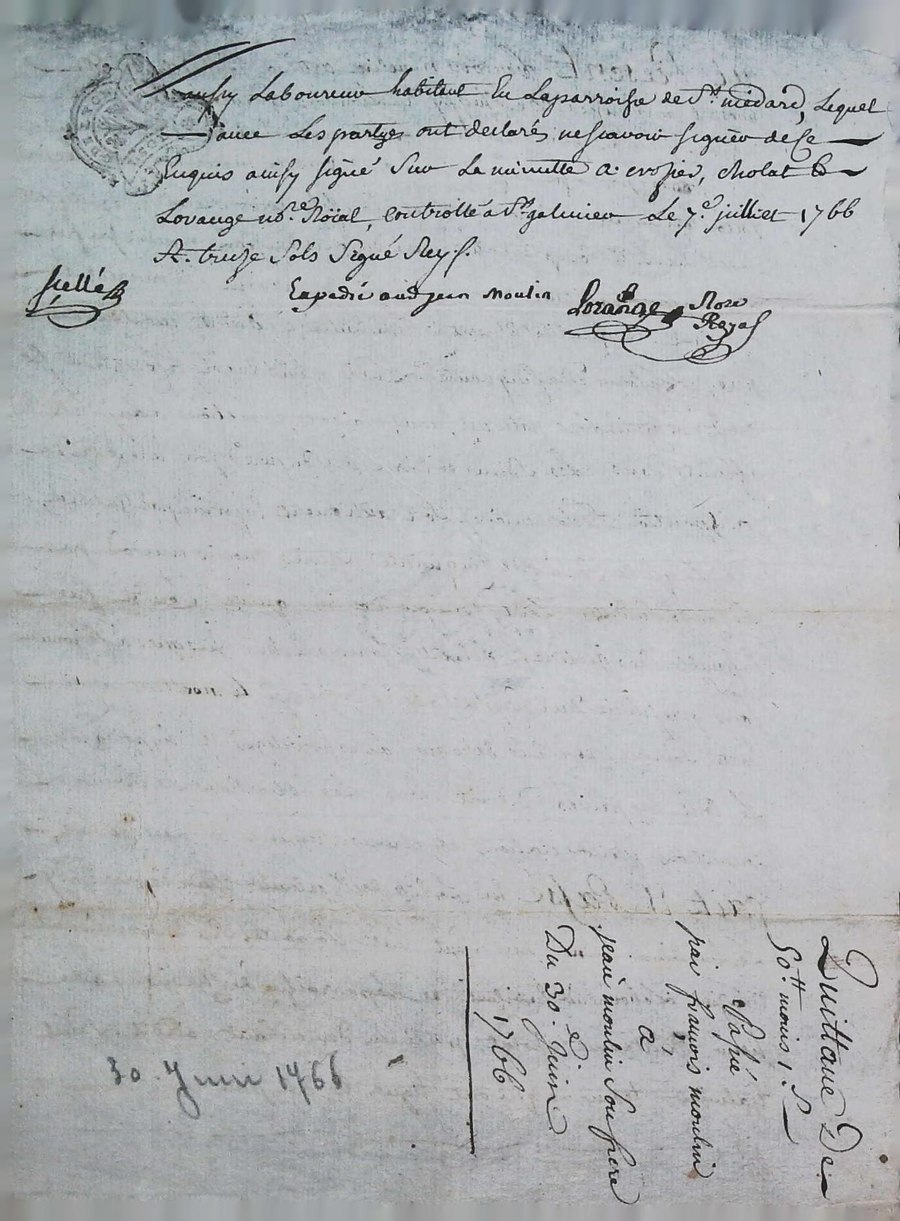 aussy Laboureur habitant En Laparroisse de St. médard, Lequel
avec Les partyes ont declarés ne scavoir signer de Ce
Enquis ainsy signé Sur La minutte a crozier, cholat &
Lorange nore. Roïal, controllé à St. galmier Le 7e. juilliet 1766
A. treize Sols Signé Rey.
scellé
Expedié aud jean Moulin
Lorange Nore
Royal
Quittance De
50tt. moins 1. s
Passé
par françois moulin
à
jean moulin Son frere
Du 30. Juin
1766
30 Juin 1766